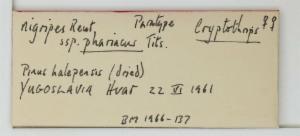 nigripes Reut. Paratype Cryptothrips ♀♀
ssp. pharinaus Tits.
Pinus halepensis (dried)
YUGOSLAVIA Hvar 22 VI 1961
BM 1966-137